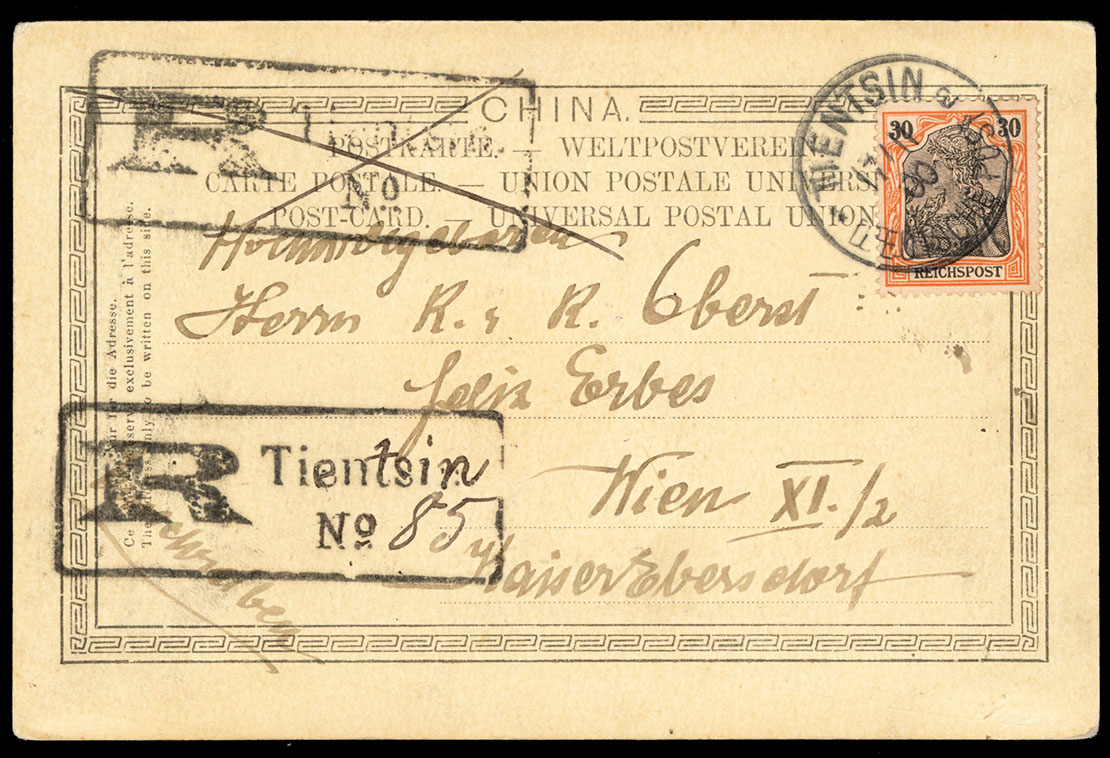 CHINA.
POSTKARTE. — WELTPOSTVEREIN
CARTE POSTALE. — UNION POSTALE UNIVERS
POST-CARD. — UNIVERSAL POSTAL UNION
R
No
TIENTSIN
DEUTSCHE POST
30 30
REICHSPOST
Hochwohlgeboren
Herrn K. u. K. Oberst
Felix Erbes
Wien XI./2
KaiserEbersdorf
R Tientsin
No 85
Nur für die Adresse.
Ce réservé exclusivement à l'adresse.
The address only to be written on this side.